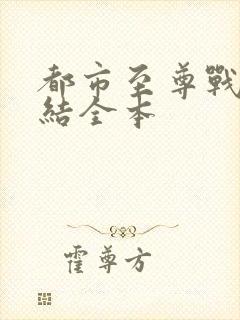 都市至尊戰
結全本
霍尊方